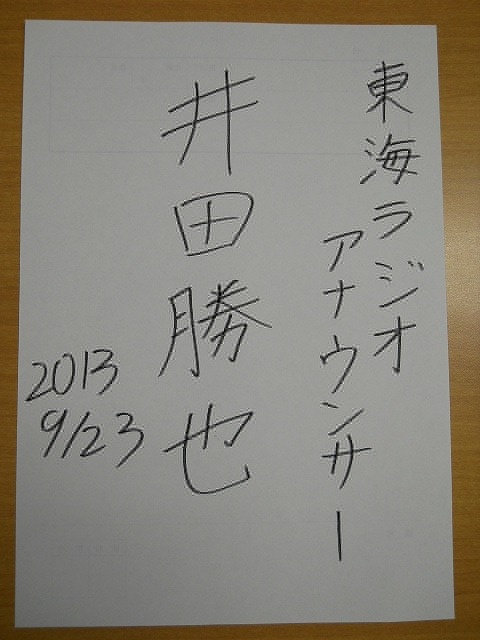 東海ラジオ
アナウンサー
井田勝也
2013
9/23